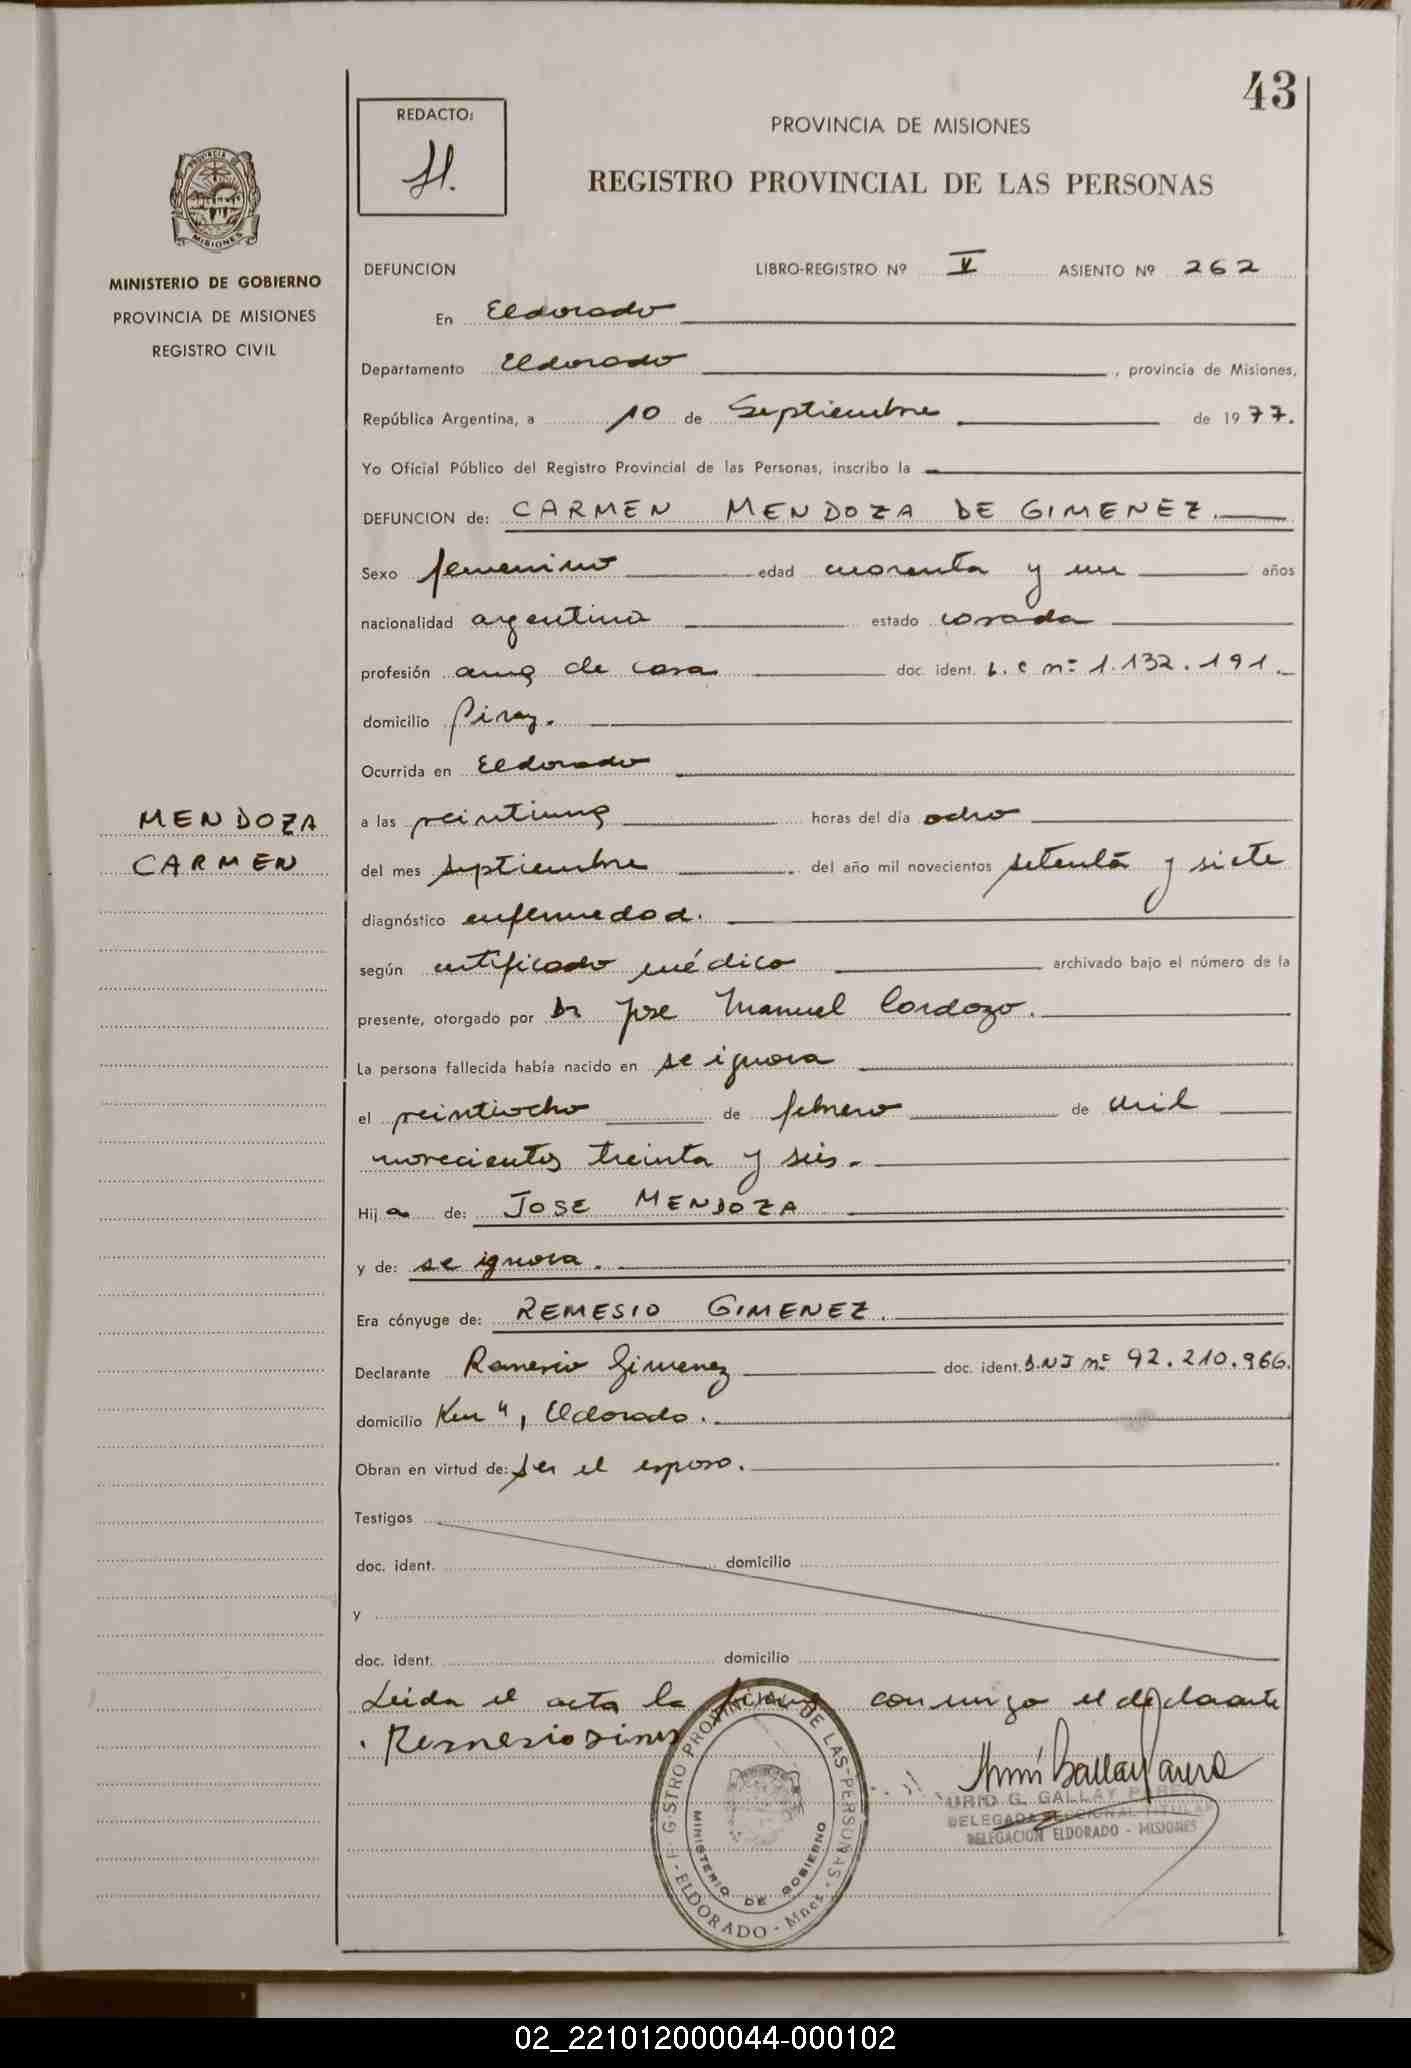 43
REDACTO:
H.
PROVINCIA DE MISIONES
REGISTRO PROVINCIAL DE LAS PERSONAS
PROVINCIA DE
MISIONES
MINISTERIO DE GOBIERNO
PROVINCIA DE MISIONES
REGISTRO CIVIL
DEFUNCION LIBRO-REGISTRO Nº V ASIENTO Nº 262
En Eldorado
Departamento Eldorado, provincia de Misiones,
República Argentina, a 10 de Septiembre de 1977.
Yo Oficial Público del Registro Provincial de las Personas, inscribo la
DEFUNCION de: CARMEN MENDOZA DE GIMENEZ.
Sexo femenino edad cuarenta y un años
nacionalidad argentina estado casada
profesión ama de casa doc. ident. L.C nº 1.132.191.
domicilio Piray.
Ocurrida en Eldorado
MENDOZA
CARMEN
a las veintiuna horas del día ocho
del mes septiembre del año mil novecientos setenta y siete
diagnóstico enfermedad.
según certificado médico archivado bajo el número de la
presente, otorgado por Dr Jose Manuel Cardozo.
La persona fallecida había nacido en se ignora
el veintiocho de febrero de mil
novecientos treinta y seis.
Hij a de: JOSE MENDOZA
y de: se ignora.
Era cónyuge de: REMESIO GIMENEZ.
Declarante Remesio Gimenez doc. ident. D.N.I nº 92.210.966.
domicilio Km 4, Eldorado.
Obran en virtud de: ser el esposo.
Testigos
doc. ident. domicilio
y
doc. ident. domicilio
Leida el acta la firma conmigo el declarante
GISTRO PROVINCIAL DE LAS PERSONAS
MINISTERIO DE GOBIERNO
ELDORADO - Mnes.
G. GALLAY
DELEGADA SECCIONAL TITULAR
DELEGACION ELDORADO - MISIONES
02_221012000044-000102